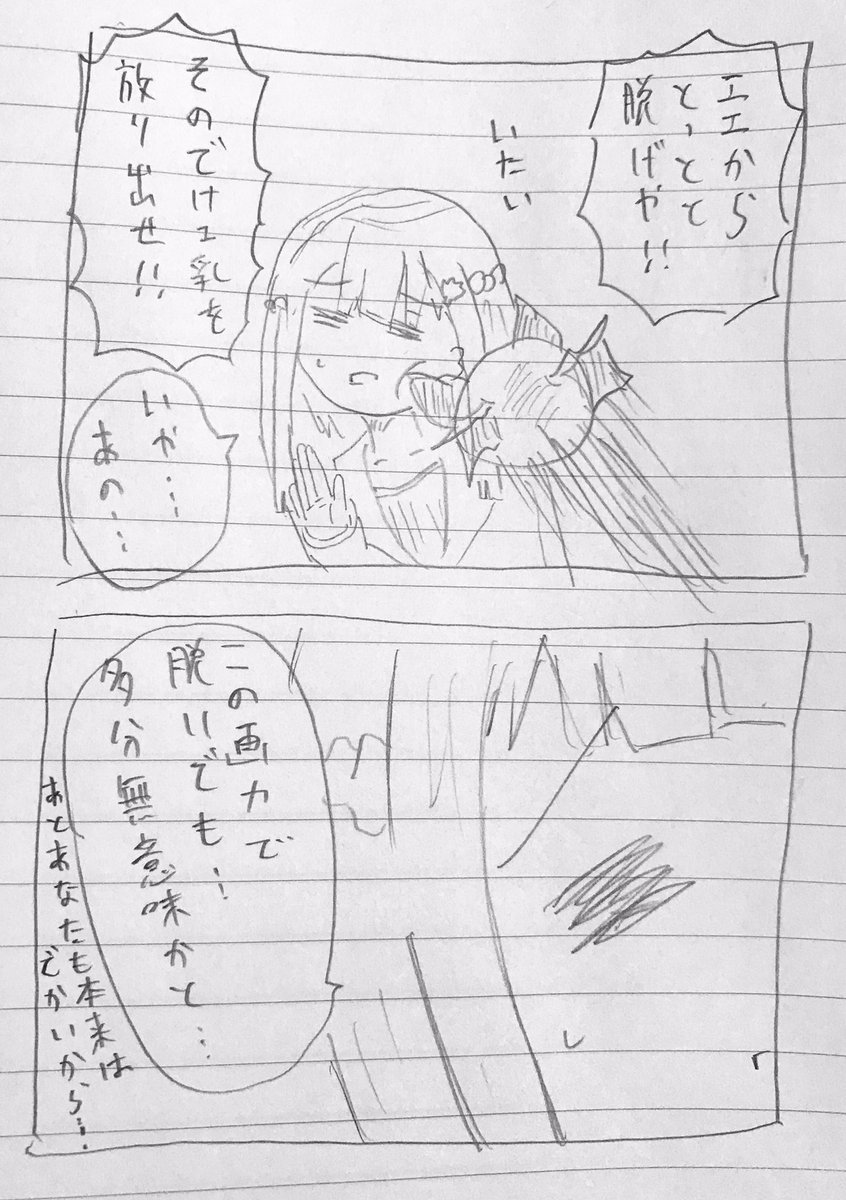 エエから
とっとと
脱げや!!
いたい
そのでけェ乳を
放り出せ!!
いや…
あの…
この画力で
脱いでも!
多分無意味かと…
あとあなたも本来は
でかいから…